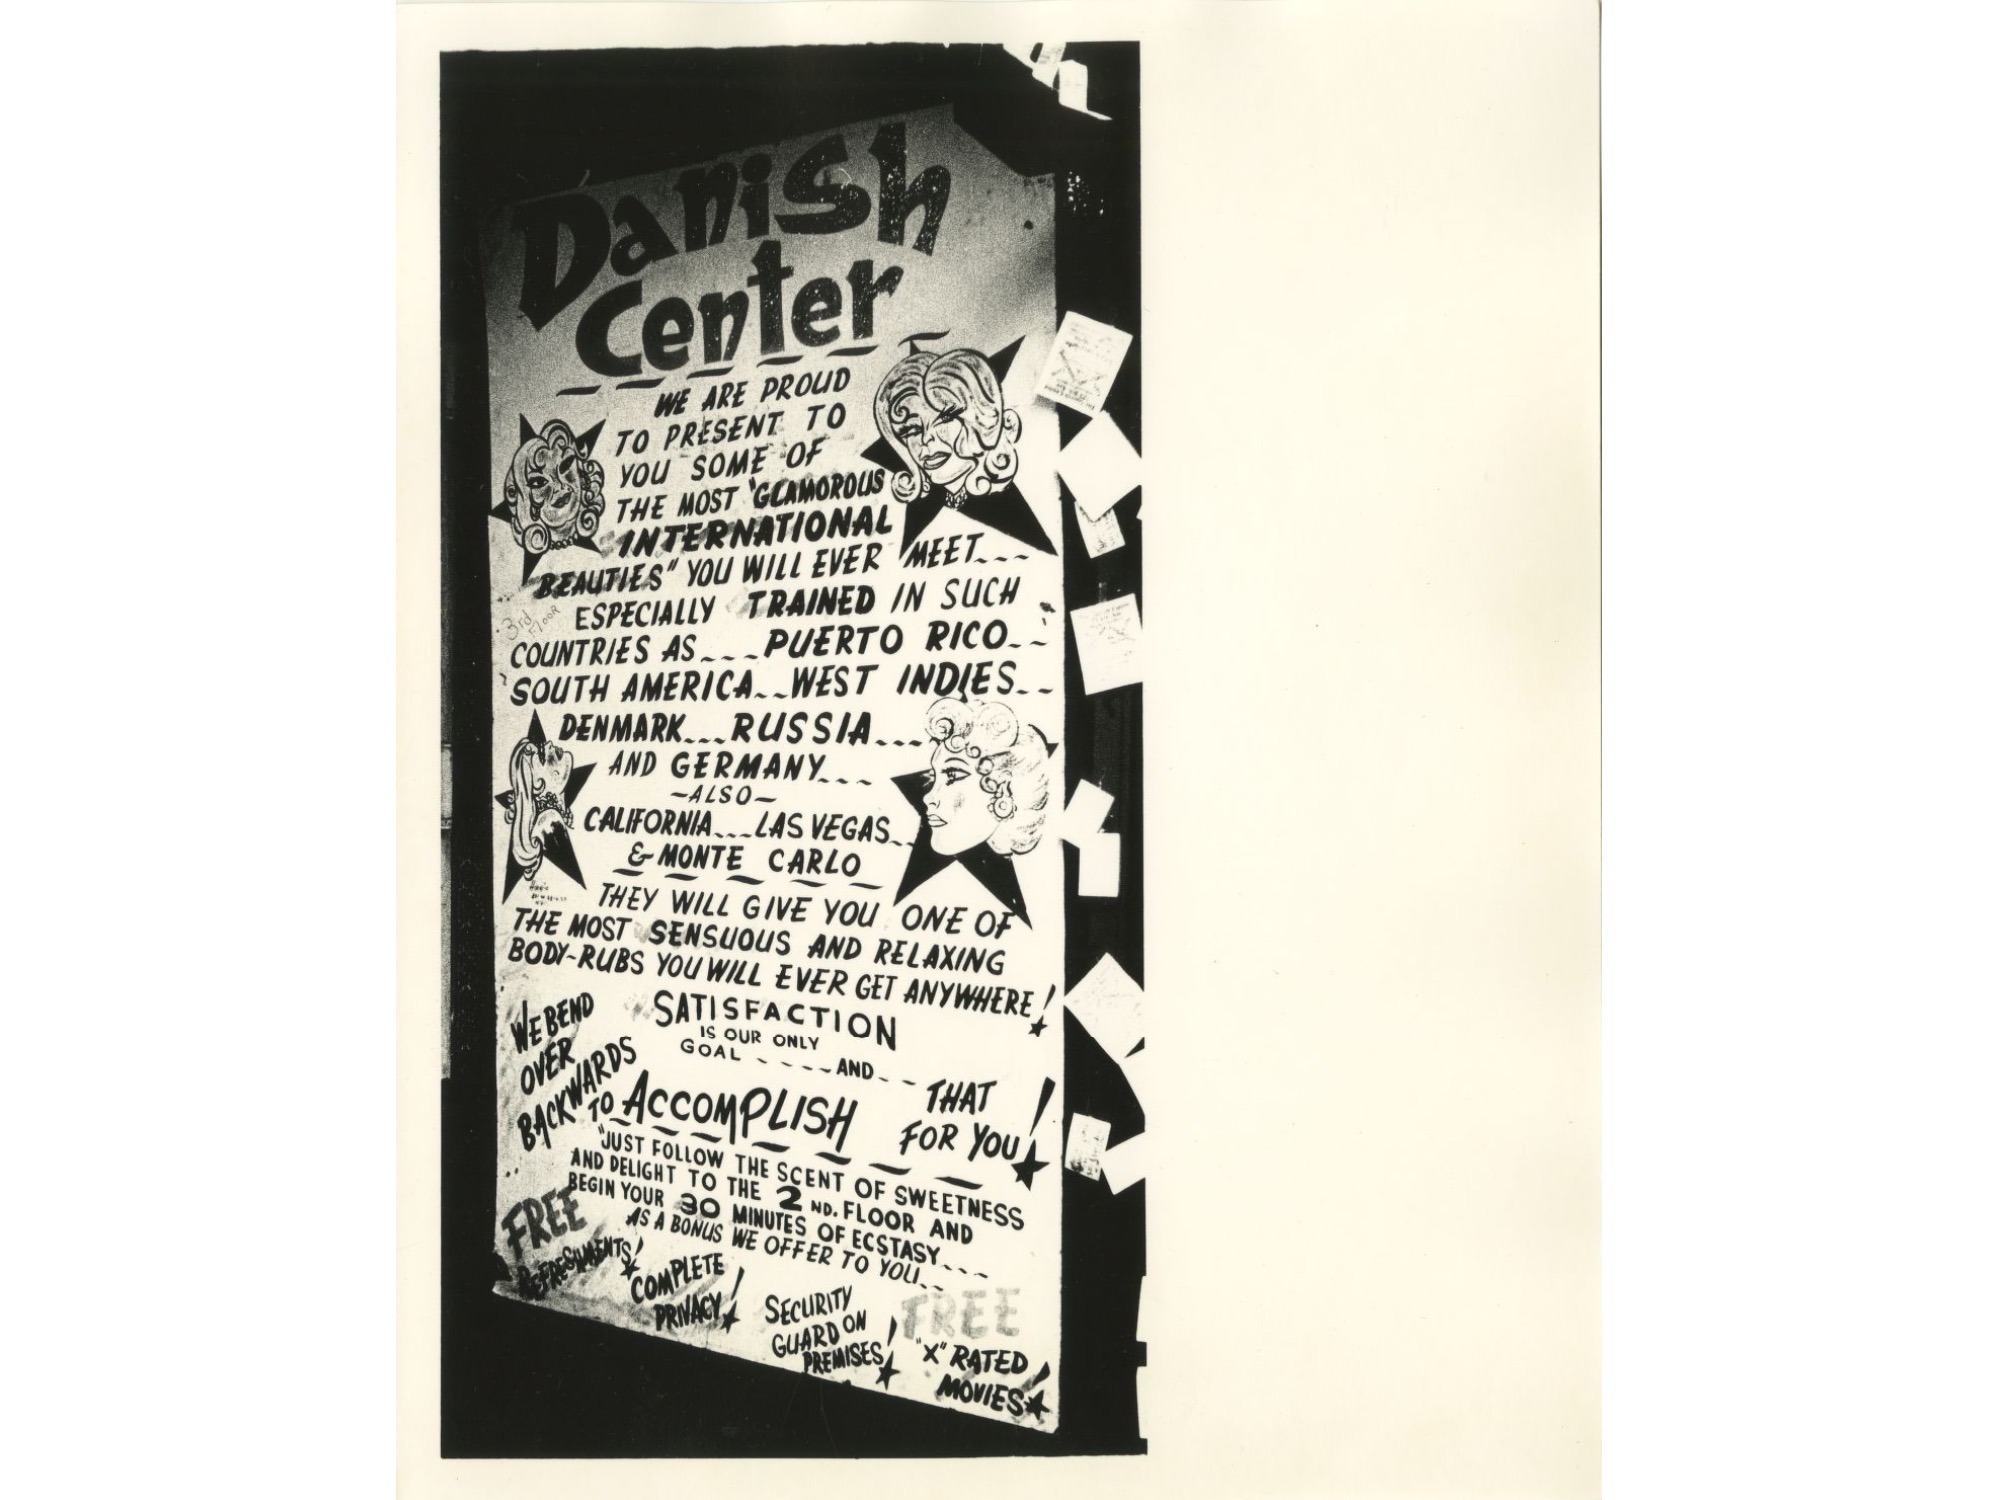 Danish
Center
WE ARE PROUD
TO PRESENT TO
YOU SOME OF
THE MOST "GLAMOROUS
INTERNATIONAL
BEAUTIES" YOU WILL EVER MEET...
3rd
FLOOR
ESPECIALLY TRAINED IN SUCH
COUNTRIES AS.... PUERTO RICO..
SOUTH AMERICA.. WEST INDIES..
DENMARK... RUSSIA...
AND GERMANY....
-ALSO-
CALIFORNIA... LAS VEGAS..
& MONTE CARLO
THEY WILL GIVE YOU ONE OF
THE MOST SENSUOUS AND RELAXING
BODY-RUBS YOU WILL EVER GET ANYWHERE!
SATISFACTION
IS OUR ONLY
GOAL ..... AND...
WE BEND
OVER
BACKWARDS
TO ACCOMPLISH
THAT
FOR YOU!
"JUST FOLLOW THE SCENT OF SWEETNESS
AND DELIGHT TO THE 2ND. FLOOR AND
BEGIN YOUR 30 MINUTES OF ECSTASY....
AS A BONUS WE OFFER TO YOU..
FREE
REFRESHMENTS!
COMPLETE
PRIVACY!
SECURITY
GUARD ON
PREMISES!
FREE
"X" RATED
MOVIES!